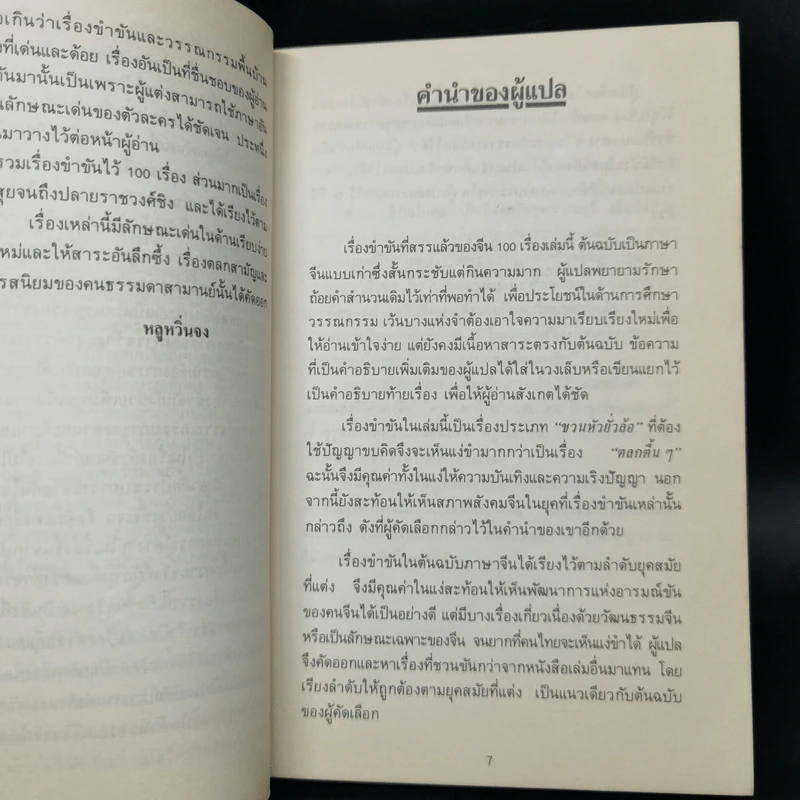 อเกินว่าเรื่องขำขันและวรรณกรรมพื้นบ้าน
งที่เด่นและด้อย เรื่องอันเป็นที่ชื่นชอบของผู้อ่าน
กันมานั้นเป็นเพราะผู้แต่งสามารถใช้ภาษาอัน
นลักษณะเด่นของตัวละครได้ชัดเจน ประหนึ่ง
นมาวางไว้ต่อหน้าผู้อ่าน
รวมเรื่องขำขันไว้ 100 เรื่อง ส่วนมากเป็นเรื่อง
สุยจนถึงปลายราชวงศ์ชิง และได้เรียงไว้ตาม
เรื่องเหล่านี้มีลักษณะเด่นในด้านเรียบง่าย
หม่และให้สาระอันลึกซึ้ง เรื่องตลกสามัญและ
รสนิยมของคนธรรมดาสามานย์นั้นได้คัดออก
หลูหวิ่นจง
คำนำของผู้แปล
เรื่องขำขันที่สรรแล้วของจีน 100 เรื่องเล่มนี้ ต้นฉบับเป็นภาษา
จีนแบบเก่าซึ่งสั้นกระชับแต่กินความมาก ผู้แปลพยายามรักษา
ถ้อยคำสำนวนเดิมไว้เท่าที่พอทำได้ เพื่อประโยชน์ในด้านการศึกษา
วรรณกรรม เว้นบางแห่งจำต้องเอาใจความมาเรียบเรียงใหม่เพื่อ
ให้อ่านเข้าใจง่าย แต่ยังคงมีเนื้อหาสาระตรงกับต้นฉบับ ข้อความ
ที่เป็นคำอธิบายเพิ่มเติมของผู้แปลได้ใส่ในวงเล็บหรือเขียนแยกไว้
เป็นคำอธิบายท้ายเรื่อง เพื่อให้ผู้อ่านสังเกตได้ชัด
เรื่องขำขันในเล่มนี้เป็นเรื่องประเภท “ชวนหัวยั่วล้อ” ที่ต้อง
ใช้ปัญญาขบคิดจึงจะเห็นแง่ขำมากกว่าเป็นเรื่อง “ตลกตื้น ๆ”
ฉะนั้นจึงมีคุณค่าทั้งในแง่ให้ความบันเทิงและความเริงปัญญา นอก
จากนี้ยังสะท้อนให้เห็นสภาพสังคมจีนในยุคที่เรื่องขำขันเหล่านั้น
กล่าวถึง ดังที่ผู้คัดเลือกกล่าวไว้ในคำนำของเขาอีกด้วย
เรื่องขำขันในต้นฉบับภาษาจีนได้เรียงไว้ตามลำดับยุคสมัย
ที่แต่ง จึงมีคุณค่าในแง่สะท้อนให้เห็นพัฒนาการแห่งอารมณ์ขัน
ของคนจีนได้เป็นอย่างดี แต่มีบางเรื่องเกี่ยวเนื่องด้วยวัฒนธรรมจีน
หรือเป็นลักษณะเฉพาะของจีน จนยากที่คนไทยจะเห็นแง่ขำได้ ผู้แปล
จึงคัดออกและหาเรื่องที่ชวนขันกว่าจากหนังสือเล่มอื่นมาแทน โดย
เรียงลำดับให้ถูกต้องตามยุคสมัยที่แต่ง เป็นแนวเดียวกับต้นฉบับ
ของผู้คัดเลือก
7